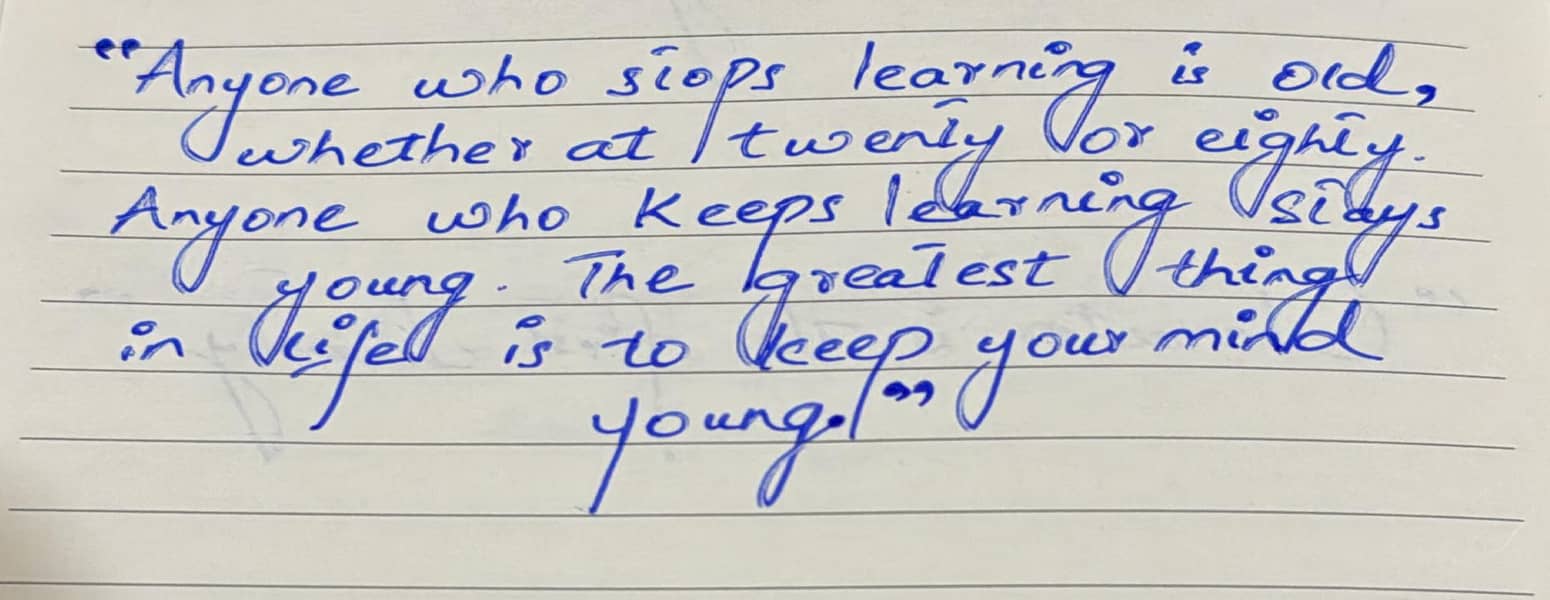 “Anyone who stops learning is old,
whether at twenty or eighty.
Anyone who keeps learning stays
young. The greatest thing
in life is to keep your mind
young.”